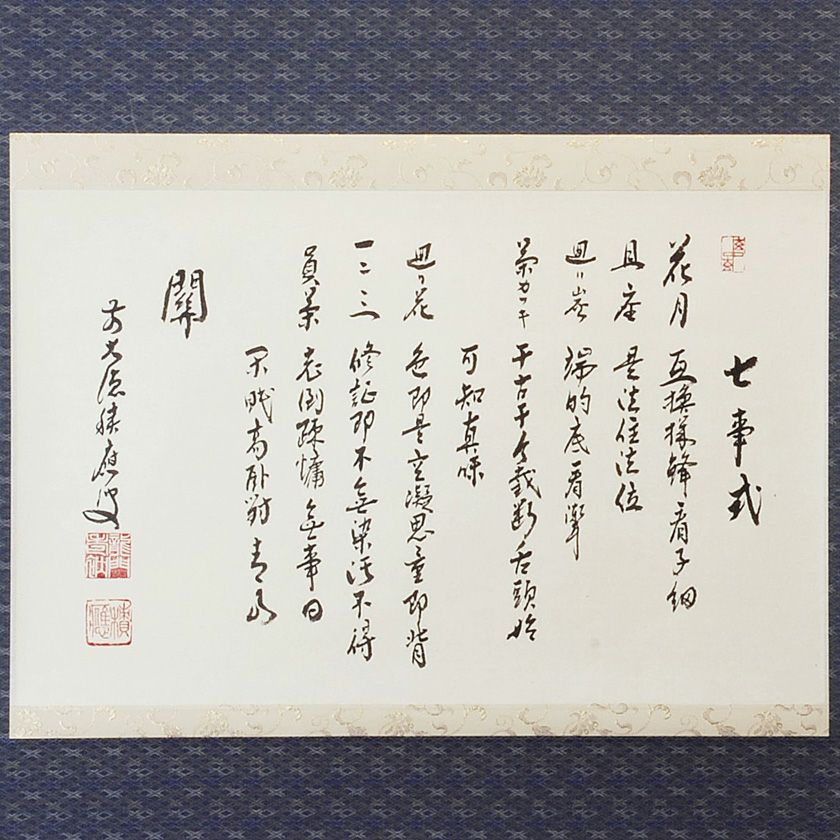 七事式
花月 互換機鋒看子細
且座 是法住法位
廻リ炭 端的底看聻
茶カフキ 千古千今截断舌頭始
可知真味
廻リ花 色即是空凝思量即背
一二三 修証即不無染污不得
員茶 老倒疎慵無事日
閑眠高臥對青山
關
前大徳積應叟
積應